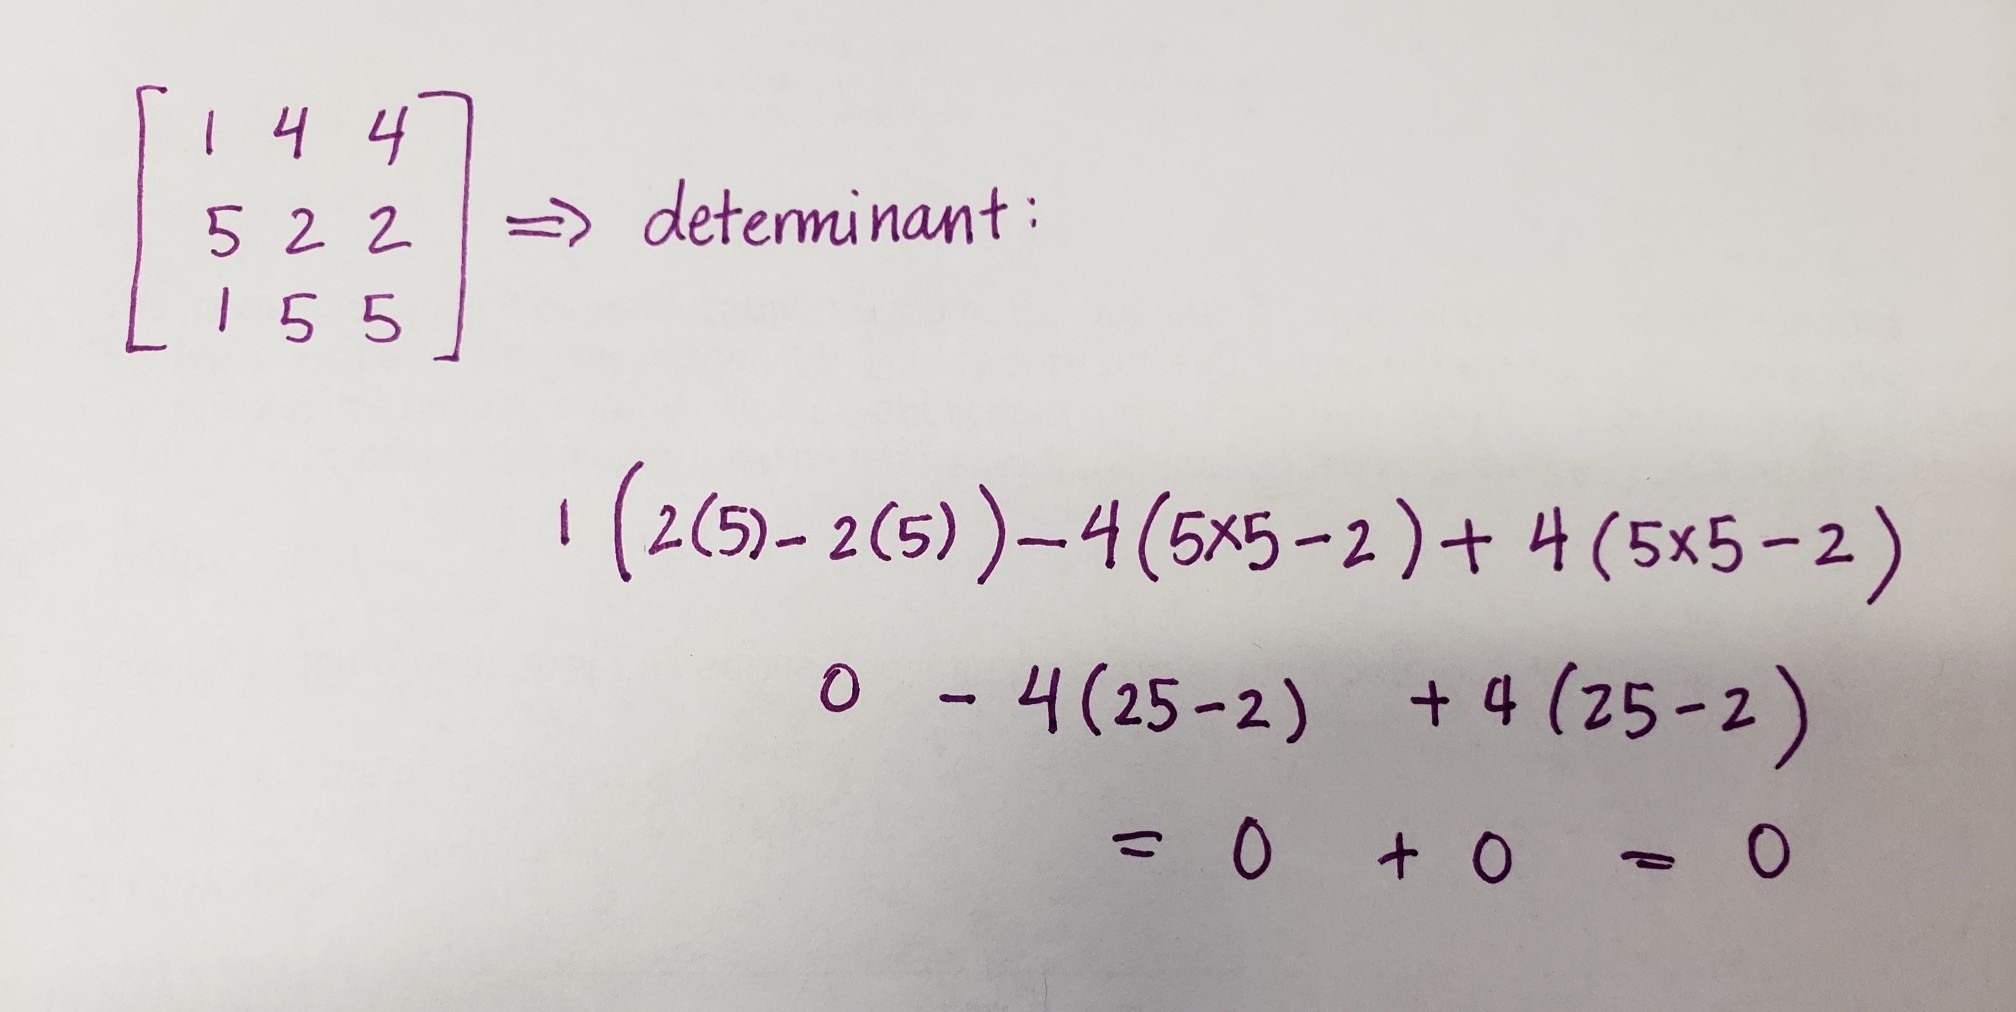 [ 1 4 4
5 2 2 ] => determinant:
1 5 5
1 (2(5) - 2(5)) - 4 (5x5 - 2) + 4 (5x5 - 2)
0 - 4 (25 - 2) + 4 (25 - 2)
= 0 + 0 = 0